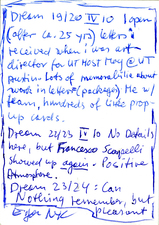 Dream 19/20 IV 10 I open
(after ca. 25 yrs) letters I
received when I was art
director for UT Most Mag @ UT
Austin. Lots of memorabilia about
words in letters (packages) Me w/
team, hundreds of little pop-
up cards.
Dream 22/23 IV 10 No Details
here, but Francesco Scarpelli
showed up again. Positive
Atmosphere.
Dream 23/24: Can
Nothing remember, but
pleasant
NYC